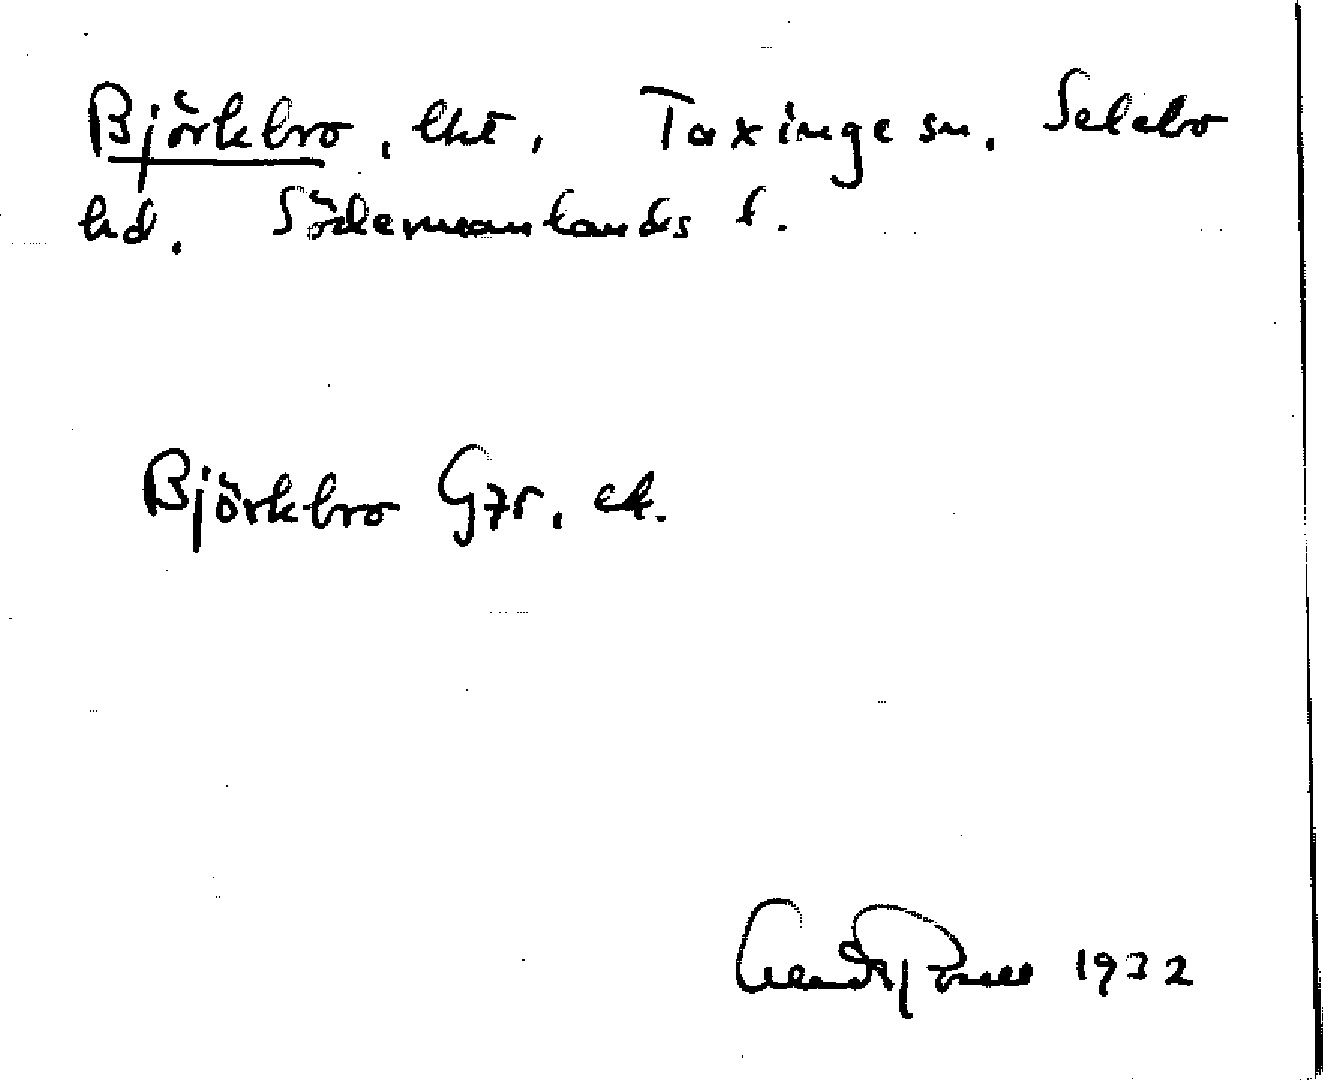 Björkbro, lht, Taxinge sn. Selebo
hd. Södermanlands l.
Björkbro G7r. ek.
1932